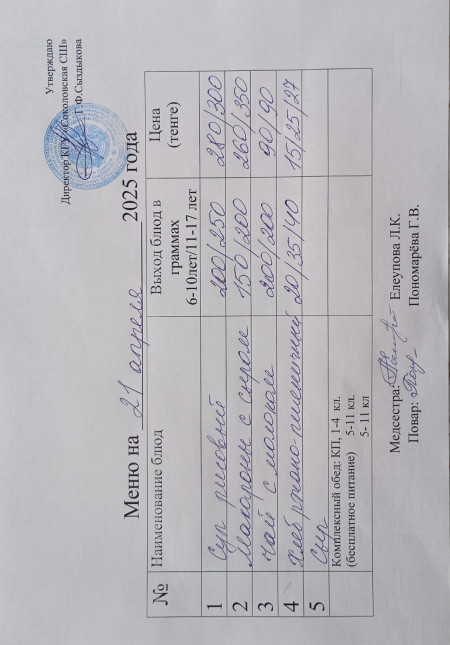 Утверждаю
Директор КГУ «Соколовская СШ»
Г.Ф.Сыздыкова
Меню на 21 апреля 2025 года
№ Наименование блюд Выход блюд в граммах 6-10лет/11-17 лет Цена (тенге)
1 Суп рисовый 200/250 280/300
2 Макароны с сыром 150/200 260/350
3 чай с молоком 200/200 90/90
4 хлеб ржано-пшеничный 20/35/40 15/25/27
5 сыр
Комплексный обед: КП, 1-4 кл.
(бесплатное питание) 5-11 кл.
5- 11 кл
Медсестра: Елеупова Л.К.
Повар: Пономарёва Г.В.